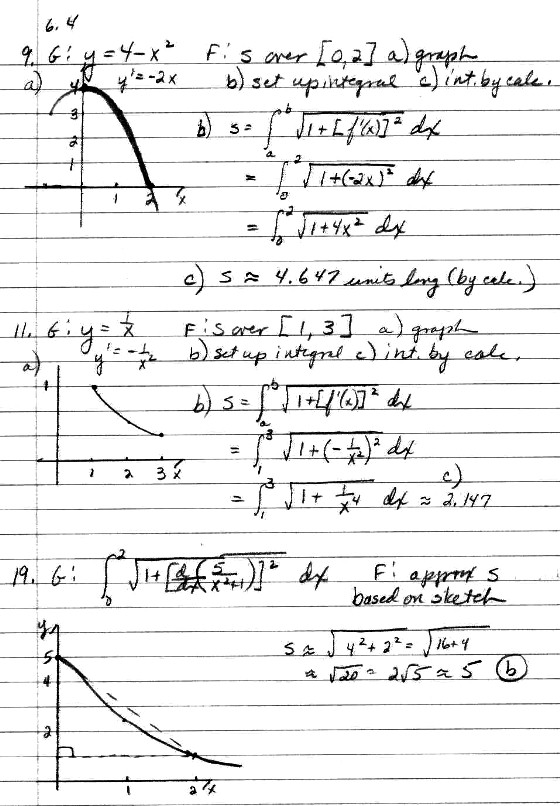 6.4
9. G: y = 4 - x² F: s over [0,2] a) graph
a) y' = -2x b) set up integral c) int. by calc.
b) s = ∫ₐᵇ √(1+[f'(x)]²) dx
= ∫₀² √(1+(-2x)²) dx
= ∫₀² √(1+4x²) dx
c) s ≈ 4.647 units long (by calc.)
4
3
2
1
1 2 x
11. G: y = 1/x F: s over [1, 3] a) graph
a) y' = -1/x² b) set up integral c) int. by calc.
b) s = ∫ₐᵇ √(1+[f'(x)]²) dx
= ∫₁³ √(1+(-1/x²)²) dx
c)
= ∫₁³ √(1+ 1/x⁴) dx ≈ 2.147
1
1 2 3 x
19. G: ∫₀² √(1+[d/dx(5/(x²+1))]²) dx F: approx s
based on sketch
s ≈ √(4²+2²) = √(16+4)
≈ √20 = 2√5 ≈ 5 (b)
y
5
4
2
1 2 x